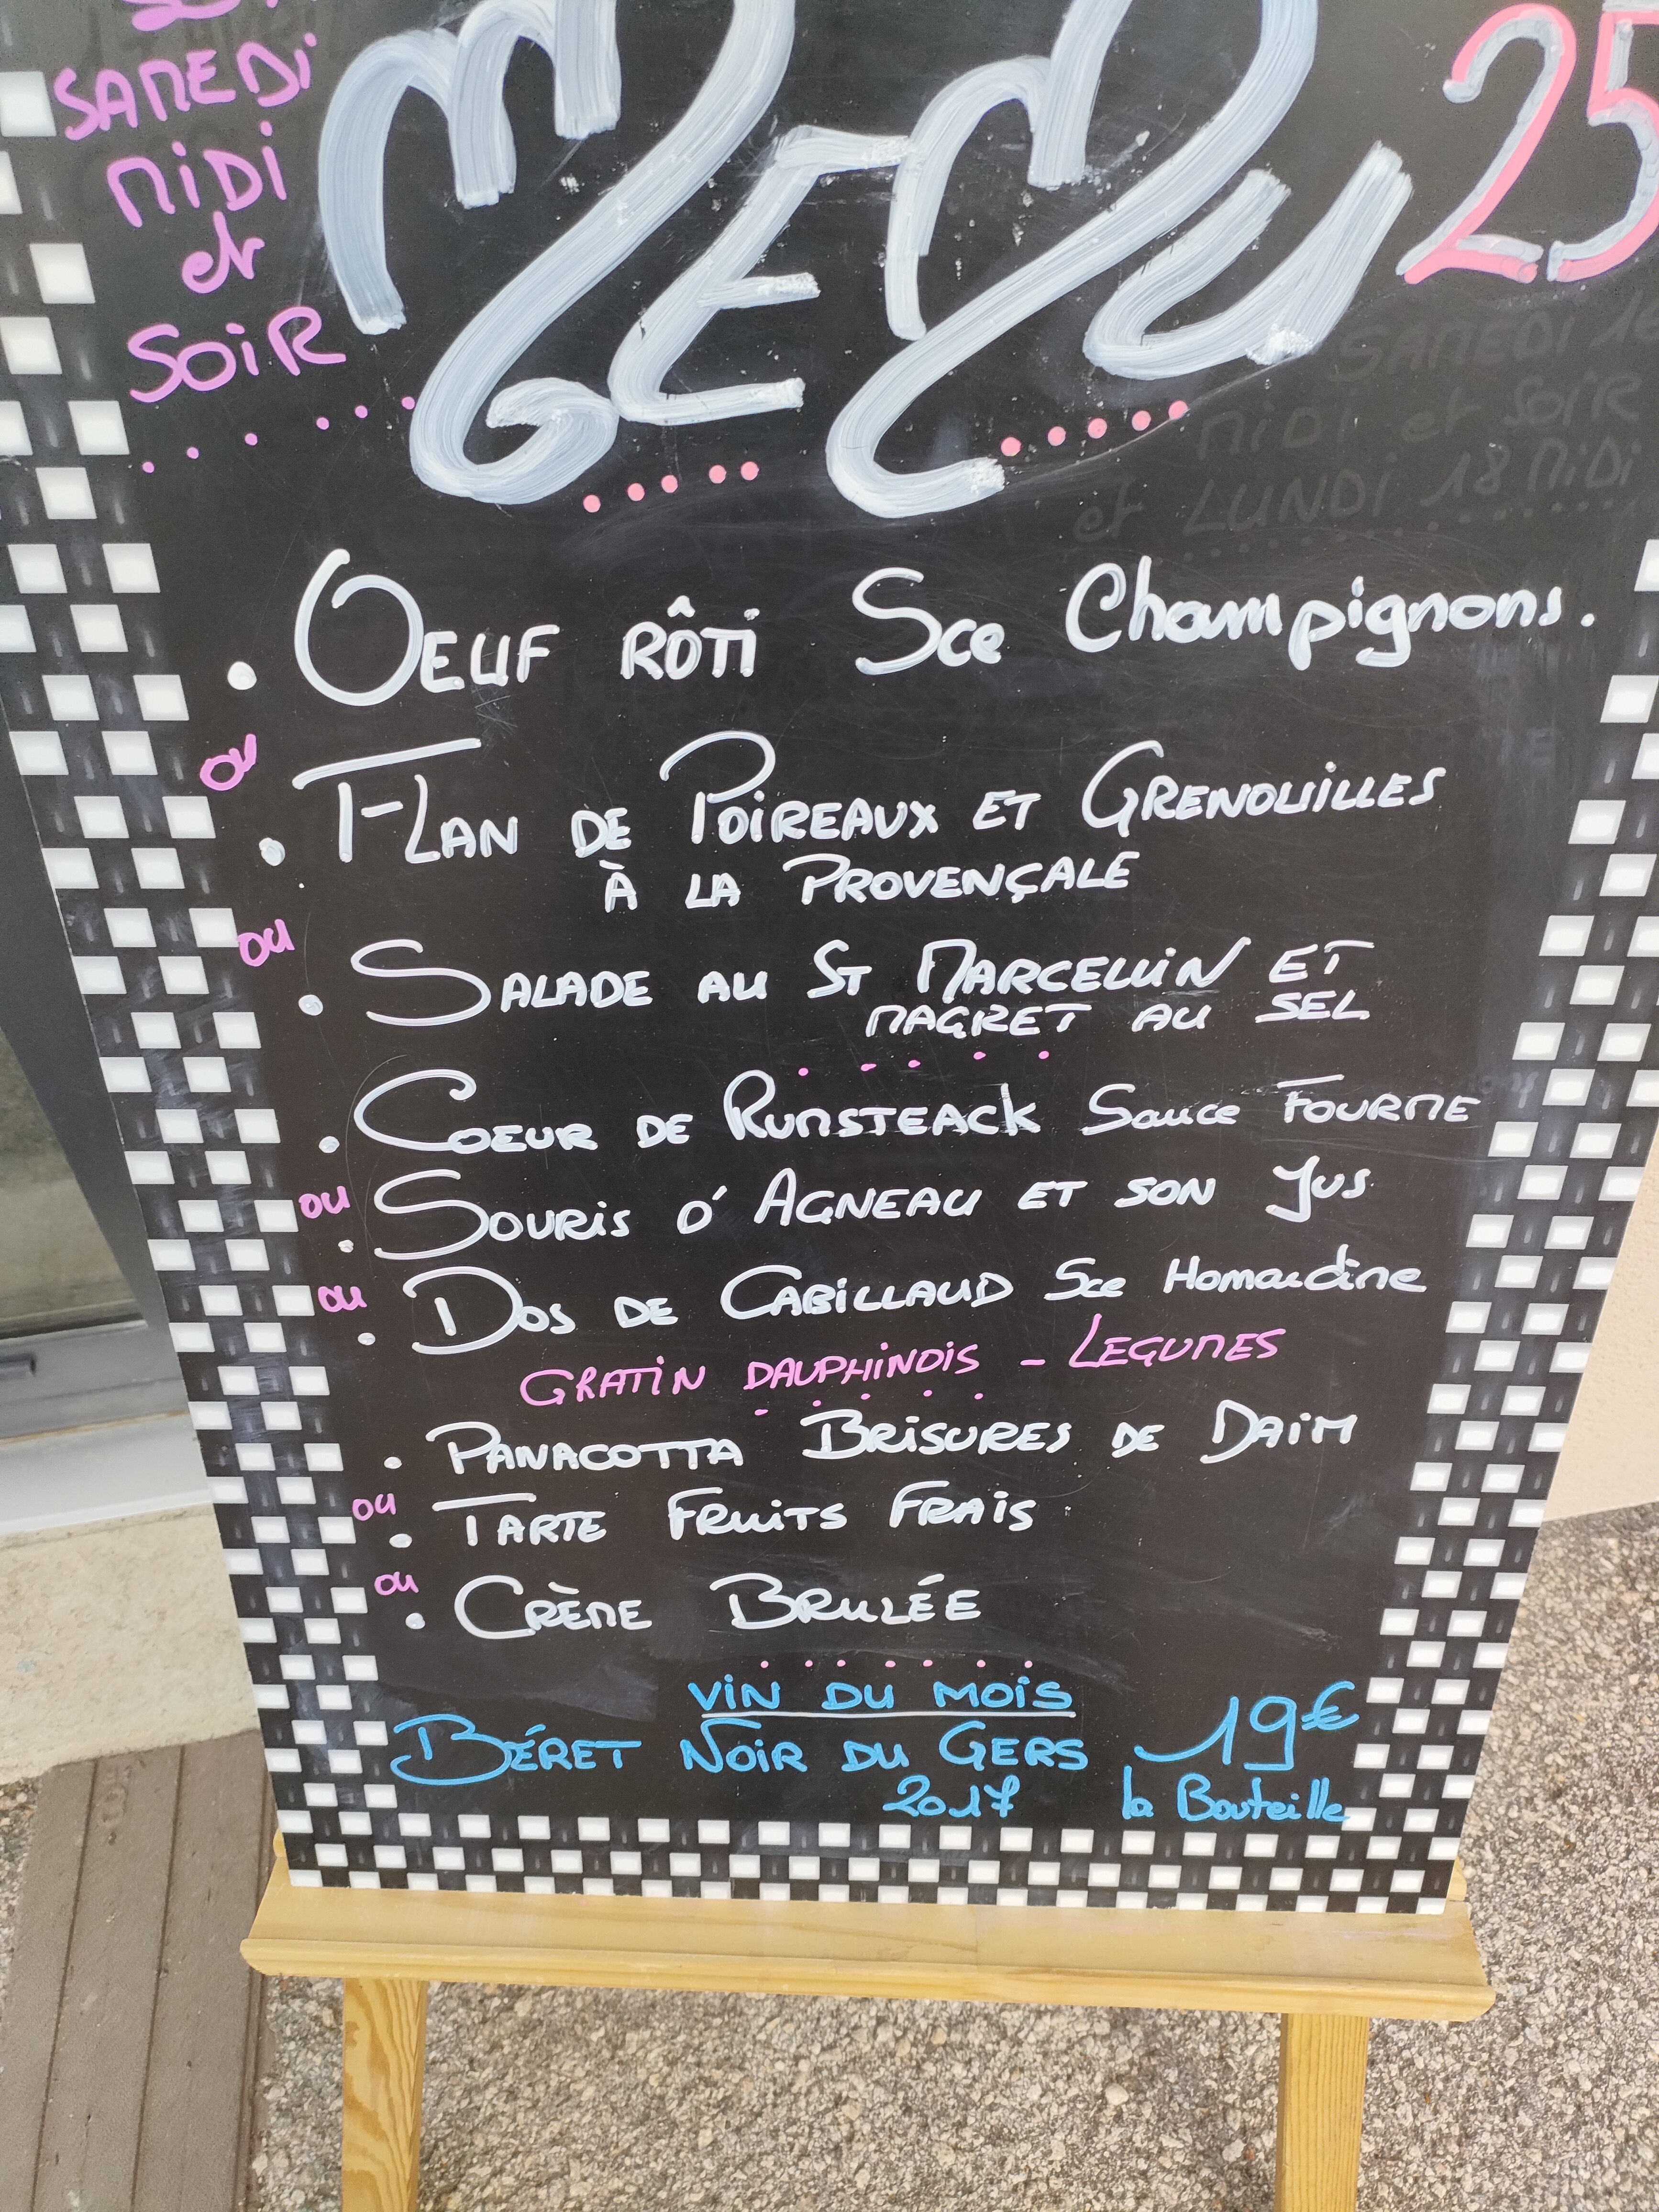 SAMEDI
MIDI
et
SOIR
MENU
25
SAMEDI 16
MIDI et SOIR
et LUNDI 18 MIDI
. OEUF RÔTI Sce Champignons.
ou
. FLAN DE POIREAUX ET GRENOUILLES
À LA PROVENÇALE
ou
. SALADE AU ST MARCELLIN ET
MAGRET AU SEL
. COEUR DE RUMSTEACK Sauce FOURME
ou
. SOURIS D'AGNEAU ET SON JUS
ou
. DOS DE CABILLAUD Sce Homardine
GRATIN DAUPHINOIS - LEGUMES
. PANACOTTA BRISURES DE DAIM
ou
. TARTE FRUITS FRAIS
ou
. CRÈME BRULÉE
VIN DU MOIS
BÉRET NOIR DU GERS 19€
2017 la Bouteille